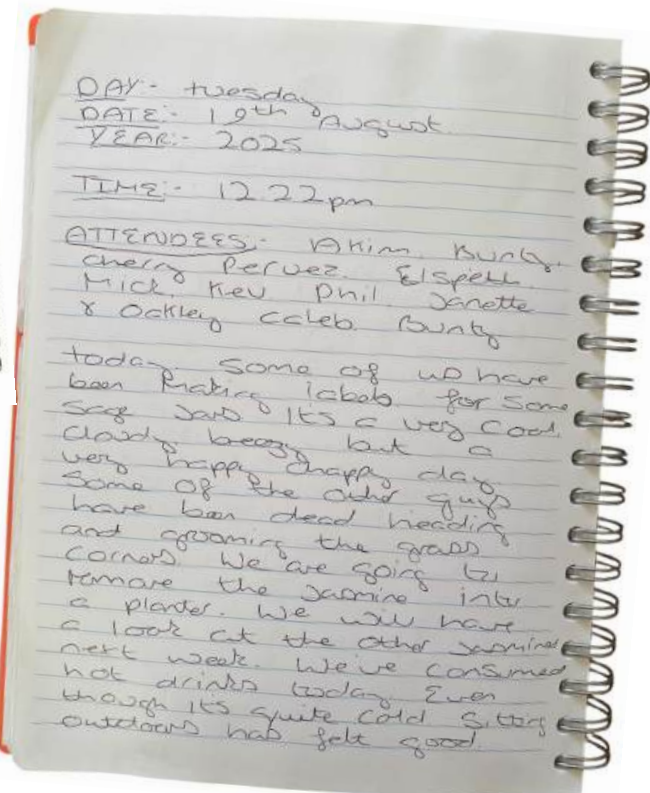 DAY:- tuesday
DATE:- 19th August.
YEAR:- 2025
TIME:- 12.22pm
ATTENDEES:- Akim. Bunty.
cherry Pervez. Elspeth.
Mick. Kev Phil Janette
& Ockley caleb. Bunty
today some of us have
been making labels for some
sage jars its a very cool.
cloudy breezy but a
very happy chappy day
Some of the other guys
have been dead heading
and grooming the grass
corners. We are going to
remove the jasmine into
a planter. We will have
a look at the other jasmines
next week. We've consumed
hot drinks today. Even
though its quite cold sitting
outdoors has felt good.